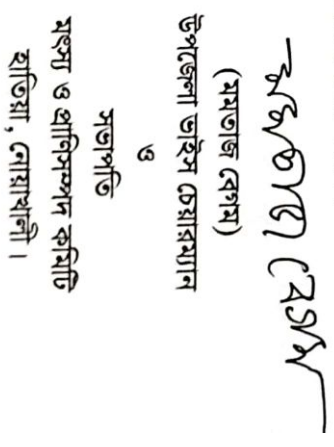 মমতাজ বেগম
(মমতাজ বেগম)
উপজেলা ভাইস চেয়ারম্যান
ও
সভাপতি
মৎস্য ও প্রাণিসম্পদ কমিটি
হাতিয়া, নোয়াখালী।